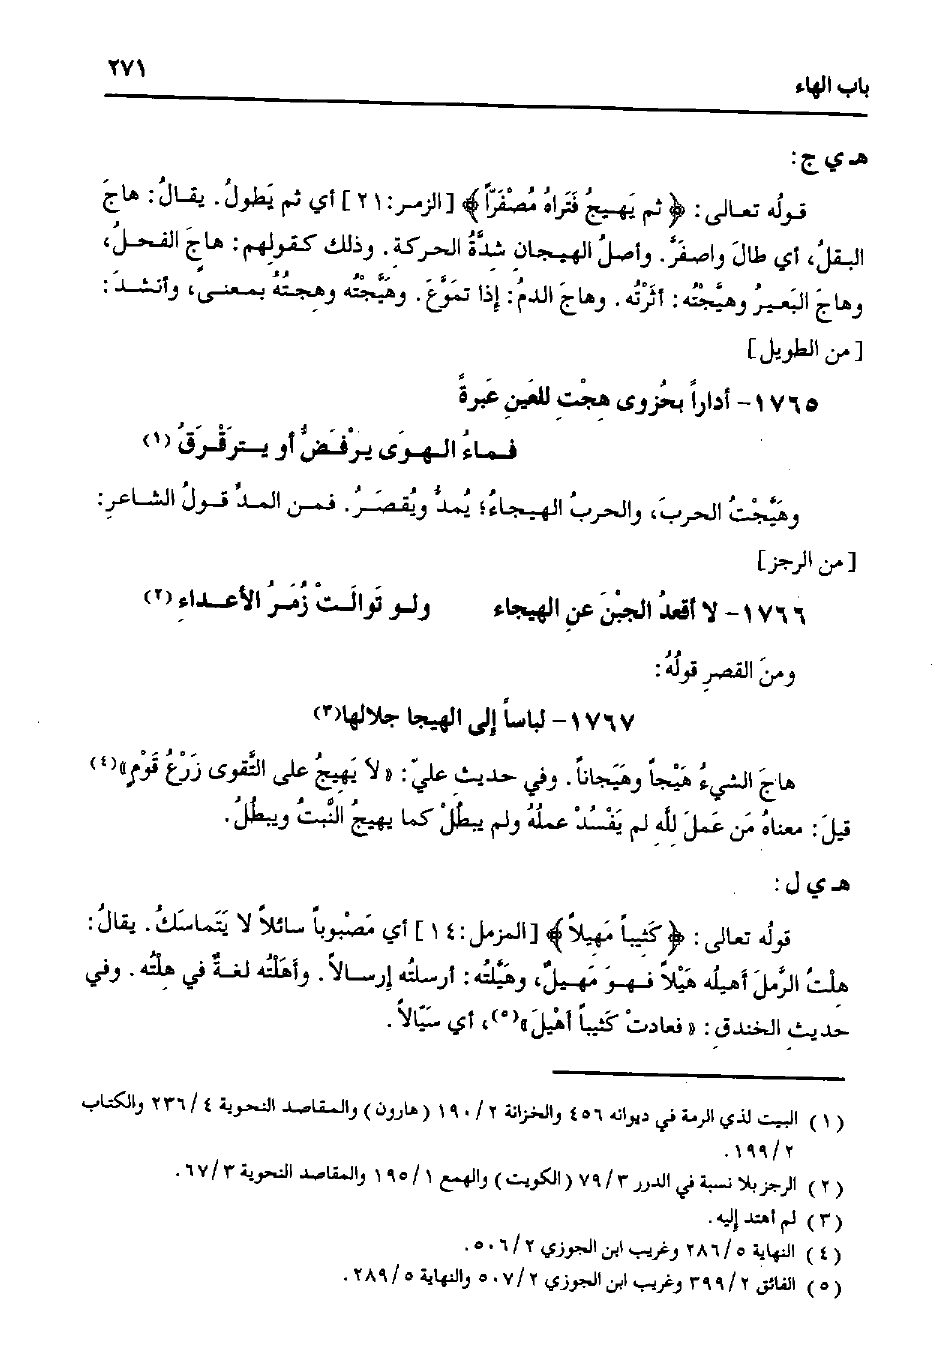 ٢٧١
باب الهاء
هـ ي ج:
قولُه تعـالى: ﴿ ثم يَهيجُ فَتَراهُ مُصْفَرّاً ﴾ [الزمـر: ٢١] أي ثم يَطولُ. يقـالُ: هاجَ
البقلُ، أي طالَ واصفَرَّ. وأصلُ الهيجانِ شدَّةُ الحركة. وذلك كقولهم: هاجَ الفحلُ،
وهاجَ البَعيرُ وهيَّجْتُه: أثَرْتُه. وهاجَ الدمُ: إذا تموَّعَ. وهَيَّجْتُه وهِجتُهُ بمعنىً، وأنشـدَ:
[من الطويل]
١٧٦٥- أداراً بحُزوى هِجْتِ للعَينِ عَبرةً
فـماءُ الـهـوَى يرْفَـضُّ أو يـترَقْـرَقُ (١)
وهَيَّجْتُ الحربَ، والحربُ الهيجاءُ؛ يُمدُّ ويُقصَـرُ. فمـن المـدِّ قـولُ الشـاعرِ:
[من الرجز]
١٧٦٦- لا أقعدُ الجبْنَ عنِ الهيجاء ولـو تَوالَـتْ زُمَـرُ الأعـداءِ (٢)
ومنَ القصرِ قولُهُ:
١٧٦٧- لباساً إلى الهيجا جلالها (٣)
هاجَ الشيءُ هَيْجاً وهَيَجاناً. وفي حديثِ عليّ: « لا يَهيجُ على التَّقوى زَرْعُ قَوْمٍ» (٤)
قيلَ: معناهُ مَن عَملَ للَّهِ لم يَفْسُدْ عملُهُ ولم يبطُلْ كما يهيجُ النَّبتُ ويبطُلُ.
هـ ي ل:
قولُه تعالى: ﴿ كَثيباً مَهيلاً ﴾ [المزمل: ١٤] أي مَصْبُوباً سائلاً لا يَتَماسَكُ. يقالُ:
هِلْتُ الرَّملَ أهيلُه هَيْلاً فـهـوَ مَهـيلٌ، وهيَّلتُه: أرسلتُه إرسـالاً. وأهَلْتُه لغـةٌ في هِلْتُه. وفي
حديثِ الخندقِ: « فعادتْ كَثيباً أهْيلَ» (٥)، أي سَيّالاً.
(١) البيت لذي الرمة في ديوانه ٤٥٦ والخزانة ٢/ ١٩٠ (هارون) والمقاصد النحوية ٤/ ٢٣٦ والكتاب
٢/ ١٩٩.
(٢) الرجز بلا نسبة في الدرر ٣/ ٧٩ (الكويت) والهمع ١/ ١٩٥ والمقاصد النحوية ٣/ ٦٧.
(٣) لم أهتد إليه.
(٤) النهاية ٥/ ٢٨٦ وغريب ابن الجوزي ٢/ ٥٠٦.
(٥) الفائق ٢/ ٣٩٩ وغريب ابن الجوزي ٢/ ٥٠٧ والنهاية ٥/ ٢٨٩.